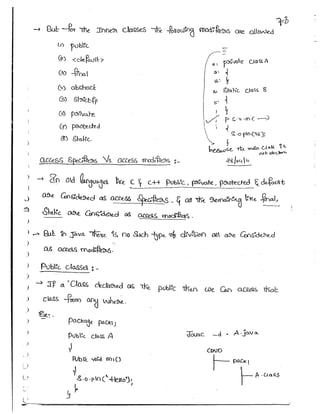 7-3
→ But for the Inner classes the following modifiers are allowed
(1) public
(2) <default>
(3) final
(4) abstract
(5) strictfp
(6) private
(7) protected
(8) static.
private class A
{
}
static class B
{
p s v m( )
{
S.o.pln( );
because the main class is
access specifiers Vs access modifiers :-
→ In old languages like C & C++ public, private, protected & default
are considered as access specifiers. & all the remaining like final,
static are considered as access modifiers.
→ But in java there is no such type of division all are considered
as access modifiers.
Public classes :-
→ If a class declared as the public then we can access that
class from any where.
Ex:-
package pack1;
public class A
{
public void m1()
{
S.o.pln("Hello");
}
}
Javac -d . A.java
CWD
pack1
A.class